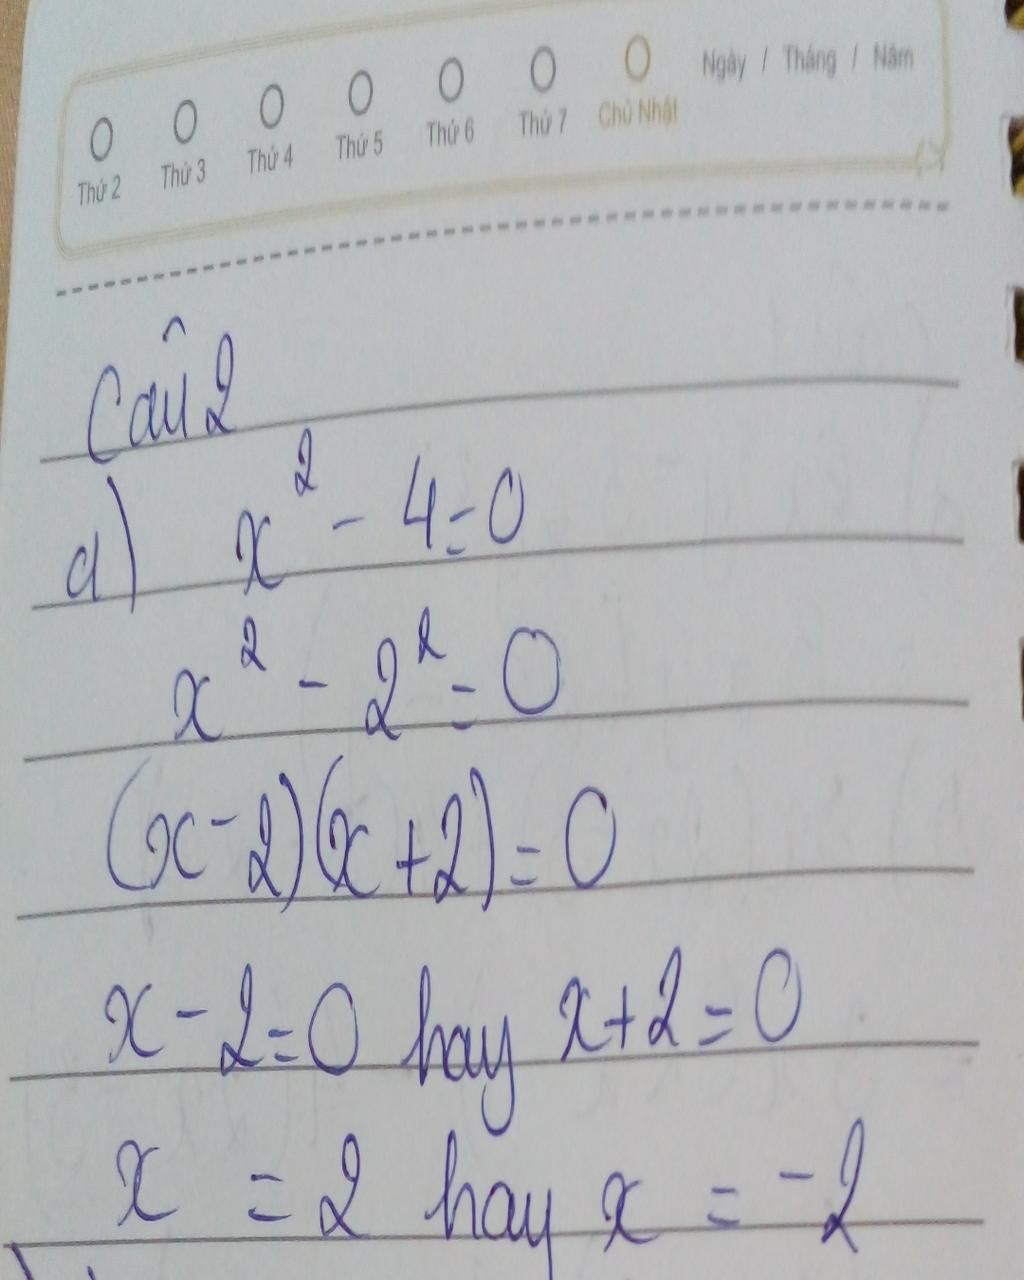 Thứ 2 Thứ 3 Thứ 4 Thứ 5 Thứ 6 Thứ 7 Chủ Nhật Ngày / Tháng / Năm
Câu 2
a) x² - 4 = 0
x² - 2² = 0
(x - 2)(x + 2) = 0
x - 2 = 0 hay x + 2 = 0
x = 2 hay x = -2